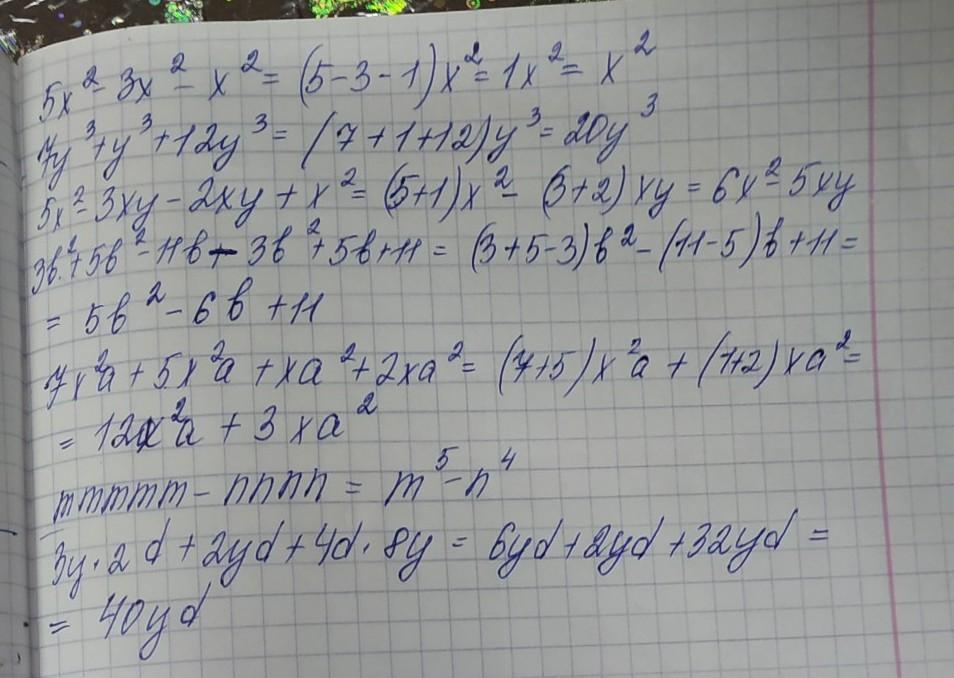 5x² - 3x² - x² = (5 - 3 - 1)x² = 1x² = x²
7y³ + y³ + 12y³ = (7 + 1 + 12)y³ = 20y³
5x² - 3xy - 2xy + x² = (5+1)x² - (3+2)xy = 6x² - 5xy
3b² + 5b² - 11b - 3b² + 5b + 11 = (3+5-3)b² - (11-5)b + 11 =
= 5b² - 6b + 11
7x²a + 5x²a + xa² + 2xa² = (7+5)x²a + (1+2)xa² =
= 12x²a + 3xa²
mmmmm - nnnn = m⁵ - n⁴
3y · 2d + 2yd + 4d · 8y = 6yd + 2yd + 32yd =
= 40yd